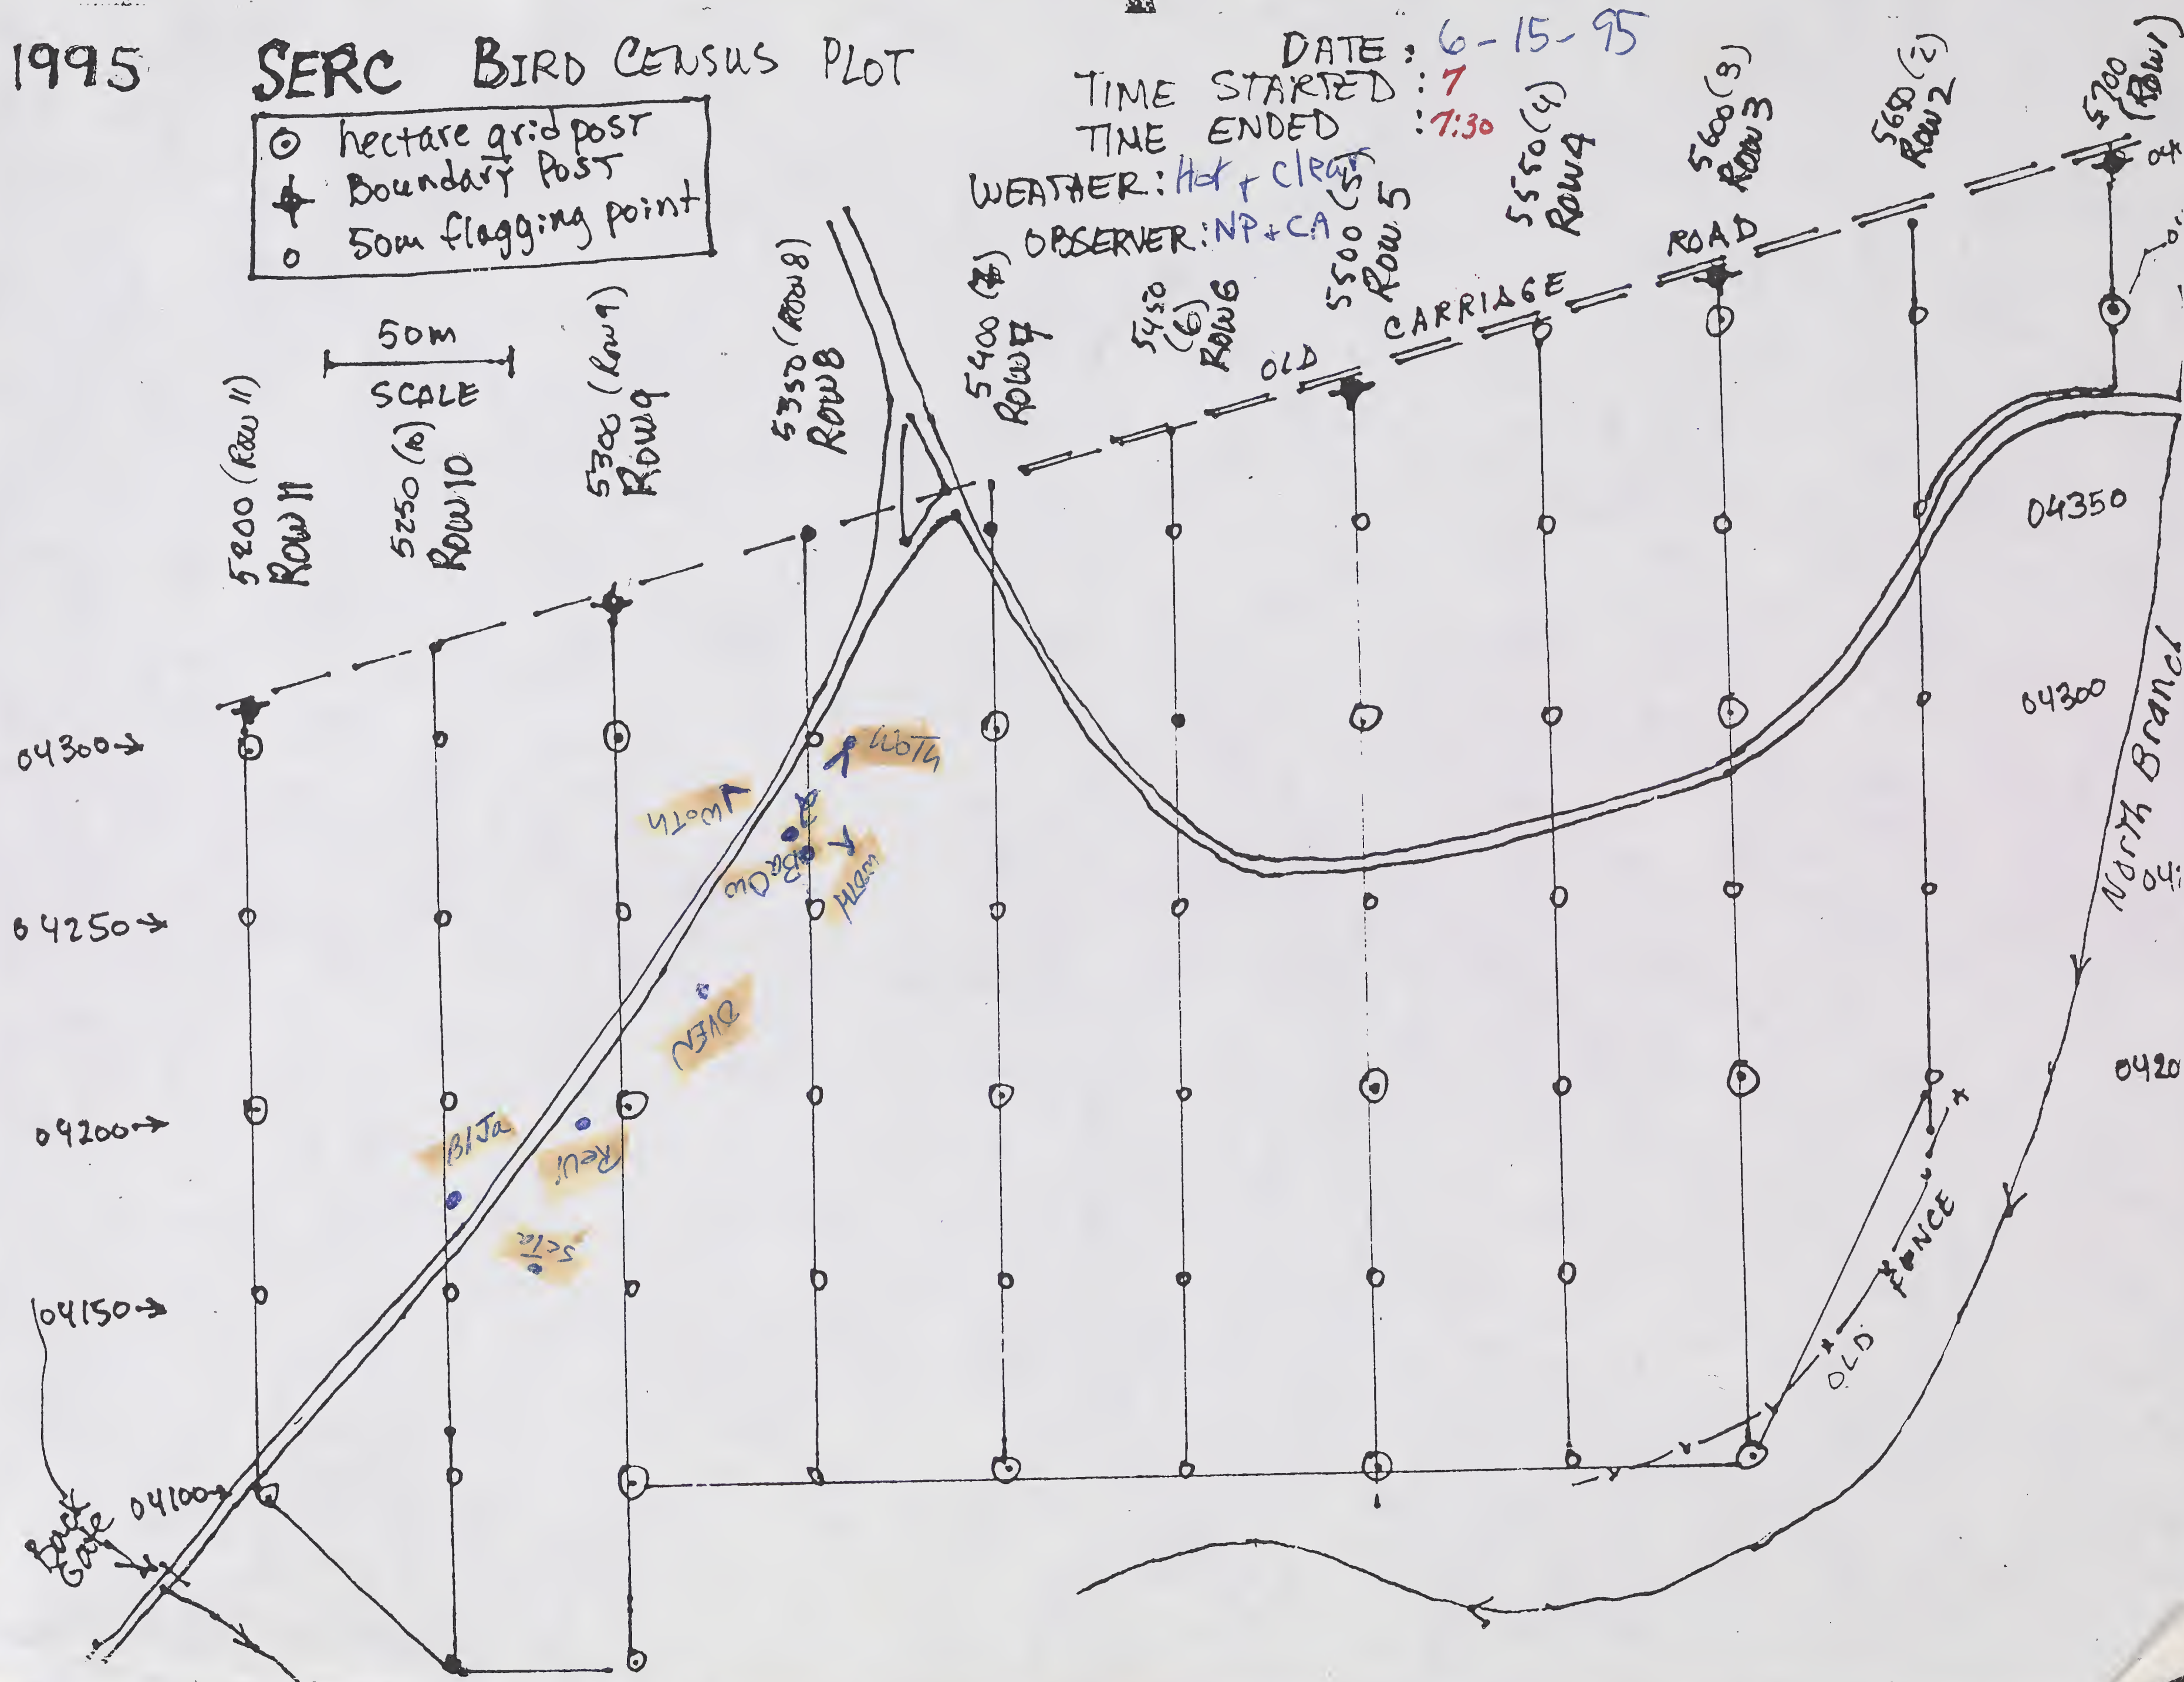 1995 SERC BIRD CENSUS PLOT
DATE: 6-15-95
TIME STARTED: 7
TIME ENDED: 7:30
WEATHER: Hot + clear
OBSERVER: NP + CA
hectare grid post
Boundary Post
50m flagging point
50m
SCALE
5200 (Row 11)
ROW 11
5250 (10)
ROW 10
5300 (Row 9)
ROW 9
5350 (ROW 8)
ROW 8
5400 (7)
ROW 7
5450
(6)
ROW 6
5500 (5)
ROW 5
5550 (4)
ROW 4
5600 (3)
ROW 3
5650 (2)
ROW 2
5700
(ROW 1)
OLD CARRIAGE ROAD
04350
04300
North Branch
0420
04300→
04250→
04200→
04150→
04100→
WOTH
WOTH
BaOw
WOTH
OVEN
BlJa
ReVi
ScTa
OLD FENCE
Back
Gate